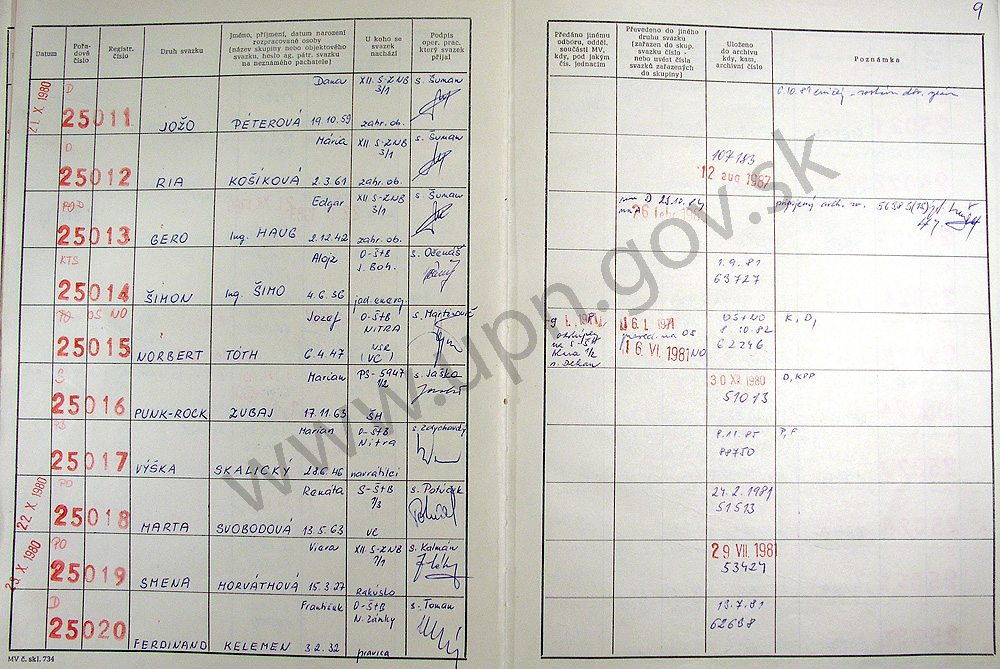 9
Datum
Pořadové číslo
Registr. číslo
Druh svazku
Jméno, příjmení, datum narození rozpracované osoby (název skupiny nebo objektového svazku, heslo ag. pátr. svazku na neznámého pachatele)
U koho se svazek nachází
Podpis oper. prac. který svazek přijal
Předáno jinému odboru, odděl. součásti MV, kdy, pod jakým čís. jednacím
Převedeno do jiného druhu svazku (zařazen do skup. svazku číslo - nebo uvést čísla svazků zařazených do skupiny)
Uloženo do archivu kdy, kam, archivní číslo
Poznámka
21. X. 1980
D
25011 JOŽO
Dana
PÉTEROVÁ 19.10.59
XII. S-ZNB 3/1
zahr. ob.
s. Šuman
6.10.81
D
25012 RIA
Mária
KOŠÍKOVÁ 2.3.61
XII S-ZNB 3/1
zahr. ob.
s. Šuman
107183
12 aug 1987
PO D
25013 GERO
Edgar
Ing. HAUG 2.12.42
XII S-ZNB 3/1
zahr. ob.
s. Šuman
D 23.10.84
pripojený arch. 
KTS
25014 ŠIMON
Alojz
Ing. ŠIMO 4.6.56
O-ŠtB
J. Boh.
jad. energ.
s. Očenáš
1.9.81
63727
PO OS NO
25015 NORBERT
Jozef
TÓTH 6.4.47
O-ŠtB
NITRA
NSR
(VC)
16. I. 1981
na OS
16. VI. 1981 NO
OS+NO
8.10.82
62246
K, D,
25016 PUNK-ROCK
Marian
ZUBAJ 17.11.63
PS-5947
1/2
ŠH
s. Jaško
30 XII. 1980
51013
D, KPP
25017 VÝŠKA
Marian
SKALICKÝ 28.6.46
O-ŠtB
Nitra
navrátilci
8.11.85
88750
P, F
22. X. 1980
PO
25018 MARTA
Renáta
SVOBODOVÁ 13.5.63
S-ŠtB
7/3
VC
s. Polúček
24.2.1981
51513
23. X. 1980
PO
25019 SMENA
Viera
HORVÁTHOVÁ 15.3.27
XII. S-ZNB
7/1
Rakúsko
s. Kalmán
29 VII. 1981
53424
D
25020 FERDINAND
František
KELEMEN 3.2.32
O-ŠtB
N. Zámky
pravica
s. Toman
13.7.81
62638
MV č. skl. 734
www.upn.gov.sk